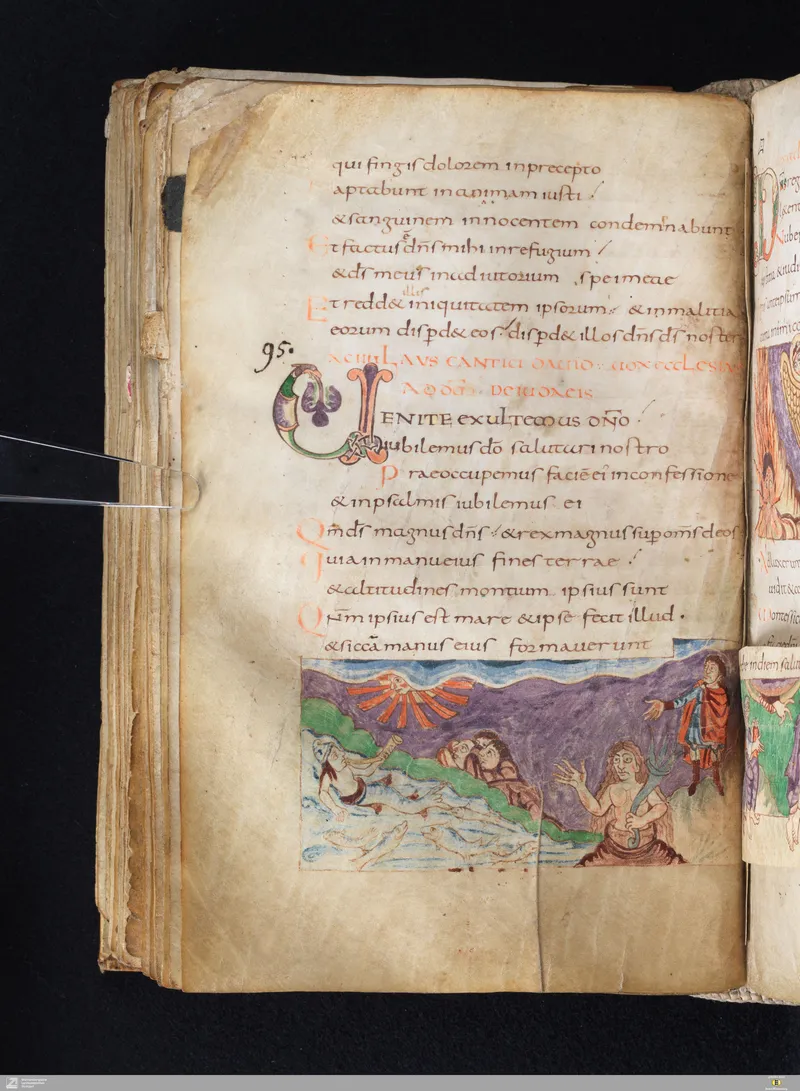 qui fingis dolorem in precepto
aptabunt in animam iusti
& sanguinem innocentem condemnabunt
Et factus ē dn̄s mihi in refugium
& ds̄ meus in adiutorium spei meae
Et redd& illis iniquitatem ipsorum & in malitia
eorum disp̱d& eos disp̱d& illos dn̄s ds̄ noster
95.
LAVS CANTICI
UENITE exultemus dn̄o
iubilemus dō salutari nostro
Praeoccupemus faciē ei' in confessione
& in psalmis iubilemus ei
Qm̄ ds̄ magnus dn̄s & rex magnus sup̱ om̄s deos
Quia in manu eius fines terrae
& altitudines montium ipsius sunt
Qn̄m ipsius est mare & ipse fecit illud
& siccā manus eius formauerunt